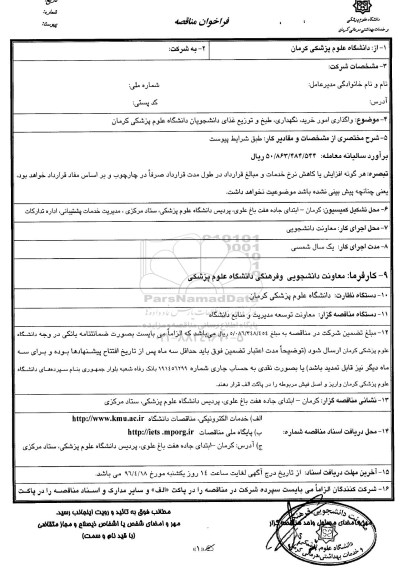 دانشگاه علوم پزشکی
و خدمات بهداشتی درمانی کرمان
فراخوان مناقصه
تاریخ:
شماره:
پیوست:
۱- از: دانشگاه علوم پزشکی کرمان
۲- به شرکت:
۳- مشخصات شرکت:
نام و نام خانوادگی مدیرعامل:
شماره ملی:
آدرس:
کد پستی:
۴- موضوع: واگذاری امور خرید، نگهداری، طبخ و توزیع غذای دانشجویان دانشگاه علوم پزشکی کرمان
۵- شرح مختصری از مشخصات و مقادیر کار: طبق شرایط پیوست
برآورد سالیانه معامله: ۵۰/۸۶۳/۴۸۴/۵۴۳ ریال
تبصره: هر گونه افزایش یا کاهش نرخ خدمات و مبالغ قرارداد در طول مدت قرارداد صرفاً در چارچوب و بر اساس مفاد قرارداد خواهد بود.
یعنی چنانچه پیش بینی نشده باشد موضوعیت نخواهد داشت.
۶- محل تشکیل کمیسیون: کرمان – ابتدای جاده هفت باغ علوی، پردیس دانشگاه علوم پزشکی، ستاد مرکزی ، مدیریت خدمات پشتیبانی، اداره تدارکات
۷- محل اجرای کار: معاونت دانشجویی
۸- مدت اجرای کار: یک سال شمسی
۹- کارفرما: معاونت دانشجویی وفرهنگی دانشگاه علوم پزشکی
۱۰- دستگاه نظارت: دانشگاه علوم پزشکی کرمان
ParsNamadData
۱۱- دستگاه مناقصه گزار: معاونت توسعه مدیریت و منابع دانشگاه
۱۲- مبلغ تضمین شرکت در مناقصه به مبلغ ۵/۰۸۶/۳۴۸/۴۵۴ ریال می‌باشد که الزاماً می بایست بصورت ضمانتنامه بانکی در وجه دانشگاه
علوم پزشکی کرمان ارسال شود (توضیحاً مدت اعتبار تضمین فوق باید حداقل سه ماه پس از تاریخ افتتاح پیشنهادها بوده و برای سه
ماه دیگر نیز قابل تمدید باشد) یا بصورت نقدی به حساب جاری شماره ۹۱۴۵۱۲۹۹ بانک رفاه شعبه بلوار جمهوری بنام سپرده‌های دانشگاه
علوم پزشکی کرمان واریز و اصل فیش مربوطه را در پاکت الف قرار دهند.
۱۳- نشانی مناقصه گزار: کرمان – ابتدای جاده هفت باغ علوی، پردیس دانشگاه علوم پزشکی، ستاد مرکزی
۱۴- محل دریافت اسناد مناقصه شماره:
الف) خدمات الکترونیکی، مناقصات دانشگاه http://www.kmu.ac.ir
ب) پایگاه ملی مناقصات http://iets .mporg.ir
ج) آدرس: کرمان –ابتدای جاده هفت باغ علوی، پردیس دانشگاه علوم پزشکی، ستاد مرکزی
۱۵- آخرین مهلت دریافت اسناد از تاریخ درج آگهی لغایت ساعت ۱۴ روز یکشنبه مورخ ۹۶/۴/۱۸ می باشد.
۱۶- شرکت کنندگان الزاماً می بایست سپرده شرکت در مناقصه را در پاکت «الف» و سایر مدارک و اسناد مناقصه را در پاکت
مهر و امضای مسئول واحد مناقصه گزار
مطالب فوق به تائید و رویت اینجانب رسید.
مهر و امضای شخص یا اشخاص ذیصلاح و مجاز متقاضی
(با قید نام و سمت)
«۱»